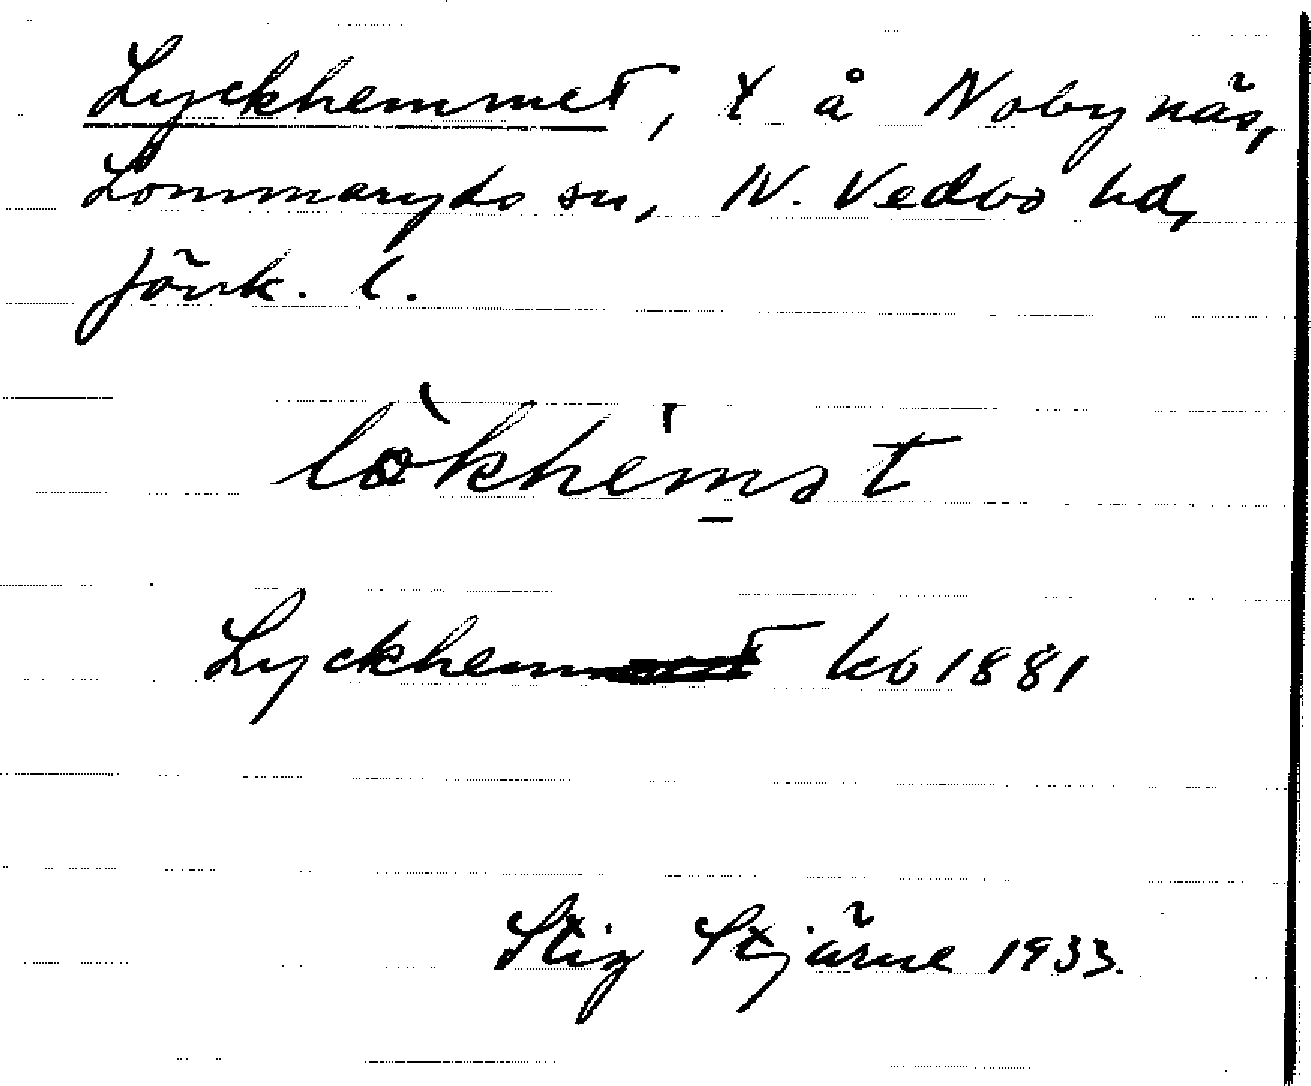 Lyckhemmet, t å Nobynäs,
Lommaryds sn, N. Vedbo hd,
Jönk. l.
lø̀khém̱ət
Lyckhem kb 1881
Stig Stjärne 1933.